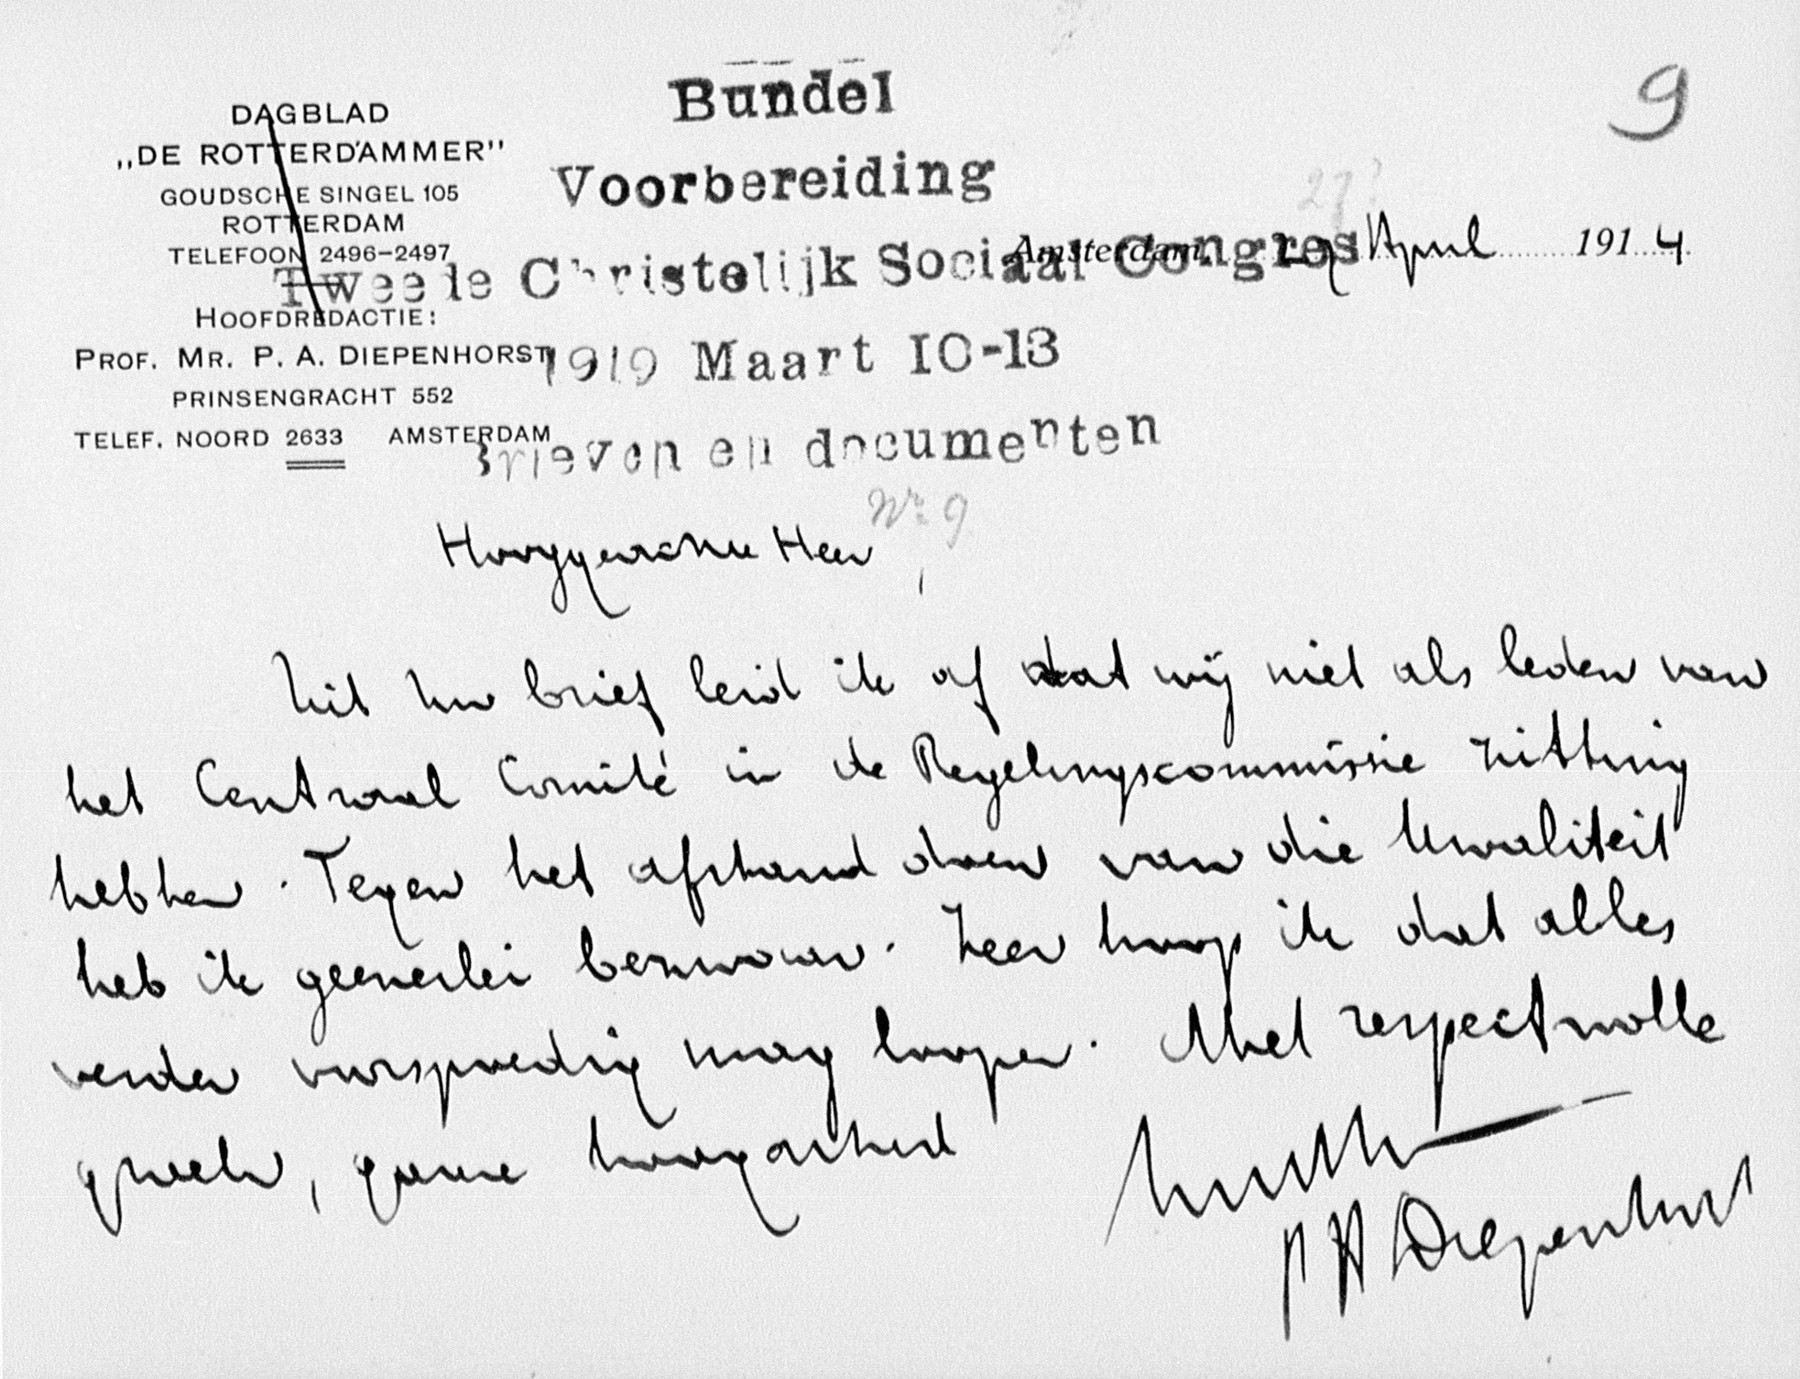 9
Bundel
Voorbereiding
Tweede Christelijk Sociaal Congres
1919 Maart 10-13
Brieven en documenten
Nr. 9
DAGBLAD
„DE ROTTERDAMMER”
GOUDSCHE SINGEL 105
ROTTERDAM
TELEFOON 2496–2497
HOOFDREDACTIE:
PROF. MR. P. A. DIEPENHORST
PRINSENGRACHT 552
TELEF. NOORD 2633 AMSTERDAM
27?
Amsterdam, April 1914
Hooggeachte Heer,
Uit Uw brief leid ik af dat wij niet als leden van
het Centraal Comité in de Regelingscommissie zitting
hebben. Tegen het afstand doen van die kwaliteit
heb ik geenerlei bezwaar. Zeer hoop ik dat alles
verder voorspoedig mag loopen. Met respectvolle
groeten, gaarne hoogachtend
PA Diepenhorst